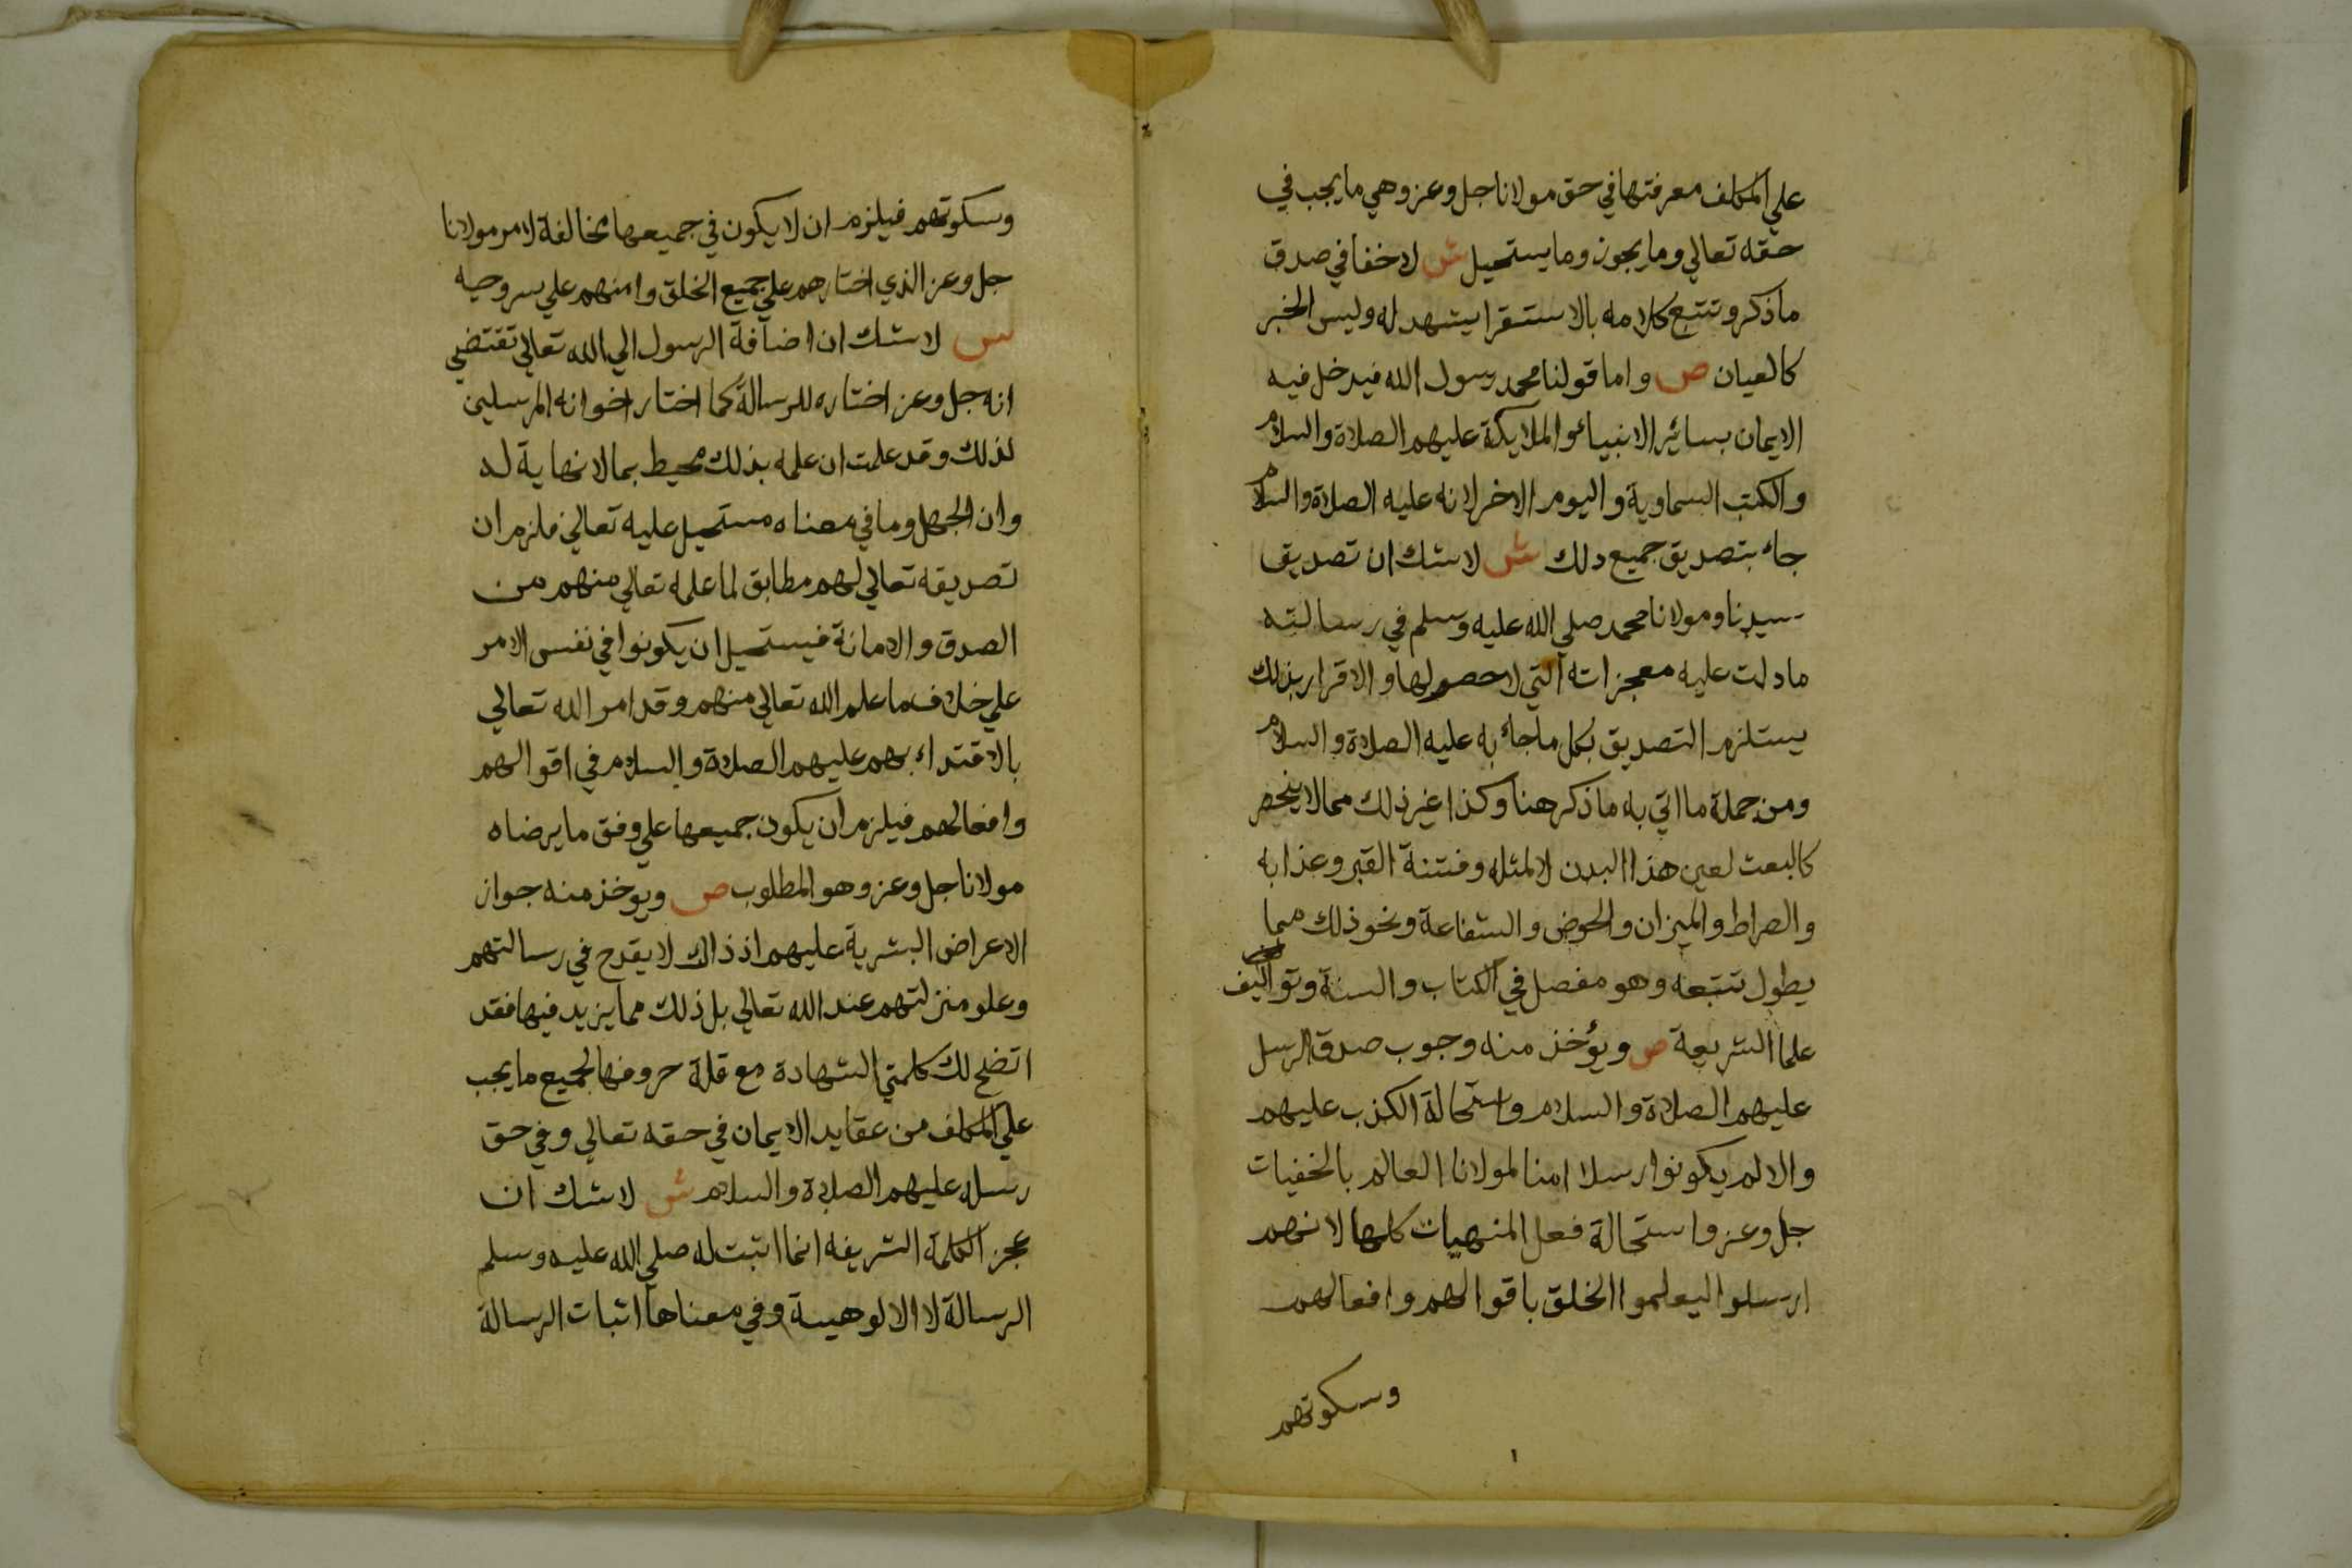 علي المكلف معرفتها في حق مولانا جل وعز وهي ما يجب في
حقه تعالي وما يجوز وما يستحيل ش لا خفا في صدق
ما ذكر وتتبع كلامه بالاستقرا يشهد له وليس الخبر
كالعيان ص واما قولنا محمد رسول الله فيدخل فيه
الايمان بسائر الانبياء والملايكة عليهم الصلاة والسلام
والكتب السماوية واليوم الاخر لانه عليه الصلاة والسلام
جاء بتصديق جميع دلك ش لا شك ان تصديق
سيدنا ومولانا محمد صلي الله عليه وسلم في رسالته
ما دلت عليه معجزاته التي لا حصر لها والاقرار بذلك
يستلزم التصديق بكل ما جاء به عليه الصلاة والسلام
ومن جملة ما اتي به ما ذكر هنا وكذا غير ذلك مما لا ينحصر
كالبعث لعين هذا البدن لا لمثله وفتنة القبر وعذابه
والصراط والميزان والحوض والشفاعة ونحو ذلك مما
يطول تتبعه وهو مفصل في الكتاب والسنة وتواليف
علما الشريعة ص ويؤخذ منه وجوب صدق الرسل
عليهم الصلاة والسلام واستحالة الكذب عليهم
والا لم يكونوا رسلا امنا لمولانا العالم بالخفيات
جل وعز واستحالة فعل المنهيات كلها لانهم
ارسلوا ليعلموا الخلق باقوالهم وافعالهم
وسكوتهم
وسكوتهم فيلزم ان لا يكون في جميعها مخالفة لامر مولانا
جل وعز الذي اختارهم علي جميع الخلق وامنهم علي سر وحيه
س لا شك ان اضافة الرسول الي الله تعالي تقتضي
انه جل وعز اختاره للرسالة كما اختار اخوانه المرسلين
لذلك وقد علمت ان علمه بذلك محيط بما لا نهاية له
وان الجهل وما في معناه مستحيل عليه تعالي فلزم ان
تصديقه تعالي لهم مطابق لما علمه تعالي منهم من
الصدق والامانة فيستحيل ان يكونوا في نفس الامر
علي خلاف ما علم الله تعالي منهم وقد امر الله تعالي
بالاقتداء بهم عليهم الصلاة والسلام في اقوالهم
وافعالهم فيلزم ان يكون جميعها علي وفق ما يرضاه
مولانا جل وعز وهو المطلوب ص ويوخذ منه جواز
الاعراض البشرية عليهم اذ ذاك لا يقدح في رسالتهم
وعلو منزلتهم عند الله تعالي بل ذلك مما يزيد فيها فقد
اتضح لك كلمتي الشهادة مع قلة حروفها لجميع ما يجب
علي المكلف من عقايد الايمان في حقه تعالي وفي حق
رسله عليهم الصلاة والسلام ش لا شك ان
عجز الكلمة الشريفه انما اثبت له صلي الله عليه وسلم
الرسالة لا الالوهيية وفي معناها اثبات الرسالة